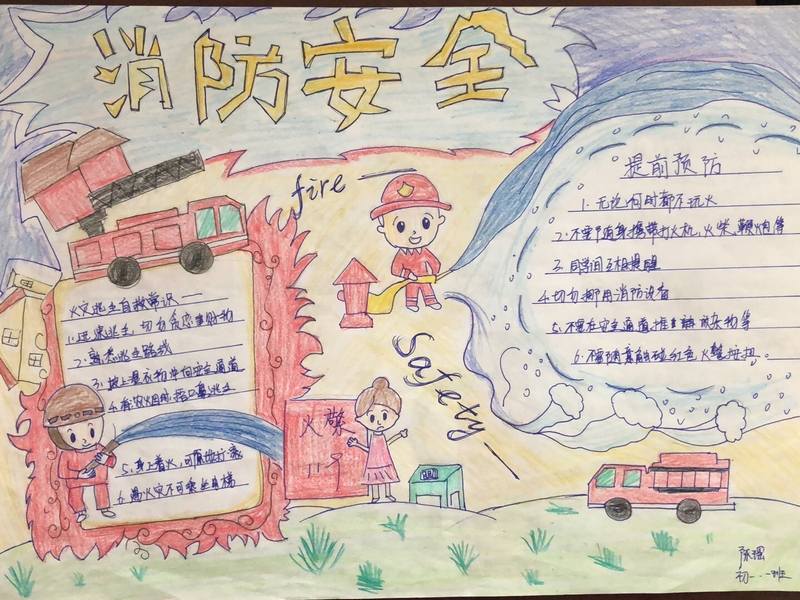 消防安全
fire
Safety
提前预防
1. 无论何时都不玩火
2. 不要随身携带打火机,火柴,鞭炮等
3. 同学间互相提醒
4. 切勿挪用消防设备
5. 不要在安全通道堆 杂物等
6. 不要随意触碰红色火警按扭。
火灾逃生自救常识
1. 迅速逃生,切勿贪恋财物
2. 熟悉逃生路线
3. 披上湿衣物冲向安全通道
4. 捂口鼻逃生
5. 身上着火,可就地打滚
6. 遇火灾不可乘坐电梯
火警
119
陈
初一.一班